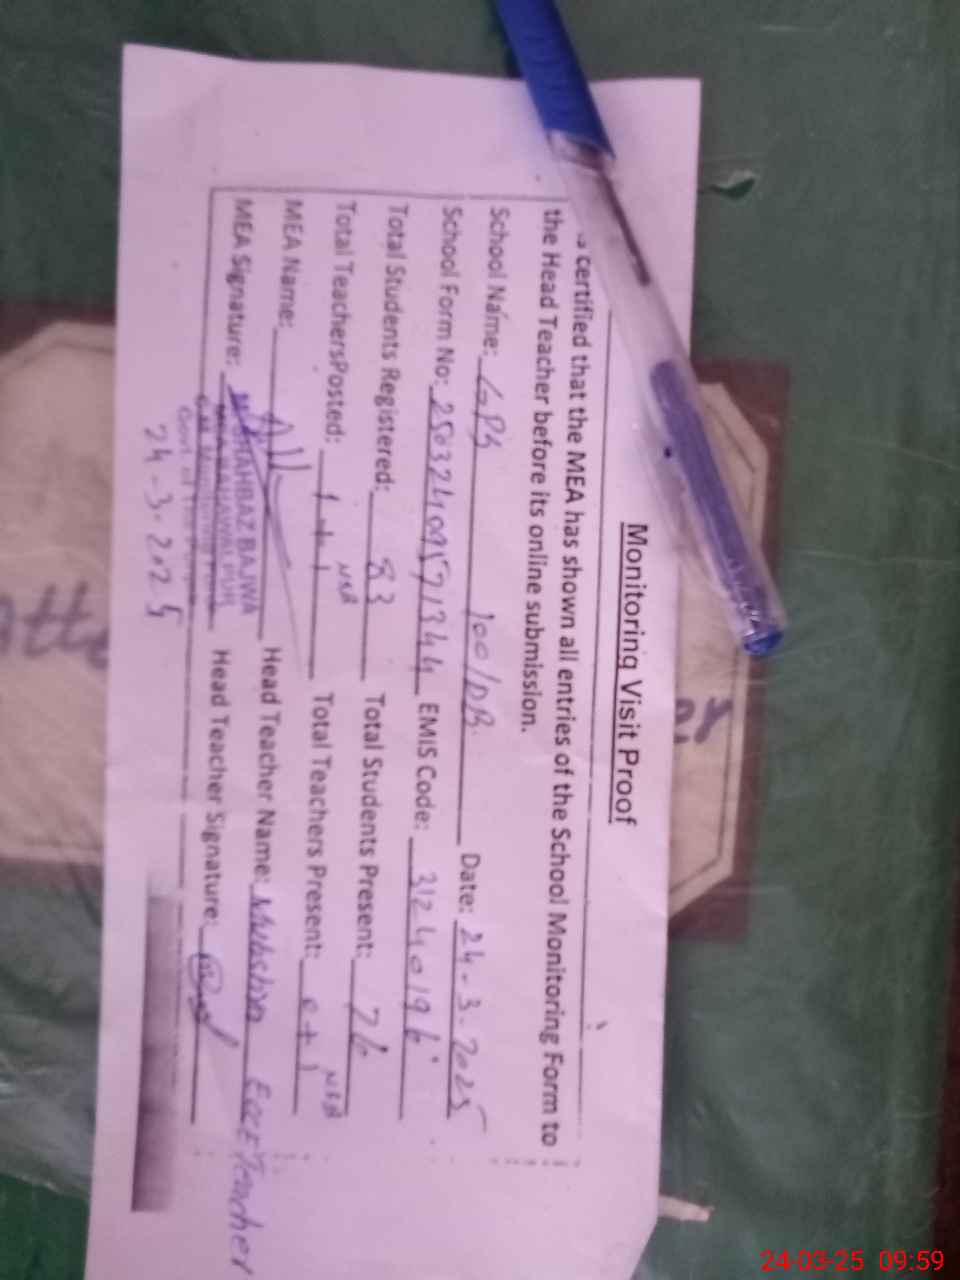 Monitoring Visit Proof
certified that the MEA has shown all entries of the School Monitoring Form to
the Head Teacher before its online submission.
School Name: GPS 100/DB Date: 24-3-2025
School Form No: EMIS Code: 31240196
Total Students Registered: 83 Total Students Present: 76
Total TeachersPosted: 1+1 NSB Total Teachers Present: 0+1 NSB
MEA Name: Head Teacher Name: ECCE Teacher
MEA Signature: SHAHBAZ BAJWA Head Teacher Signature:
BAHAWALPUR
24-3-2025
24-03-25 09:59